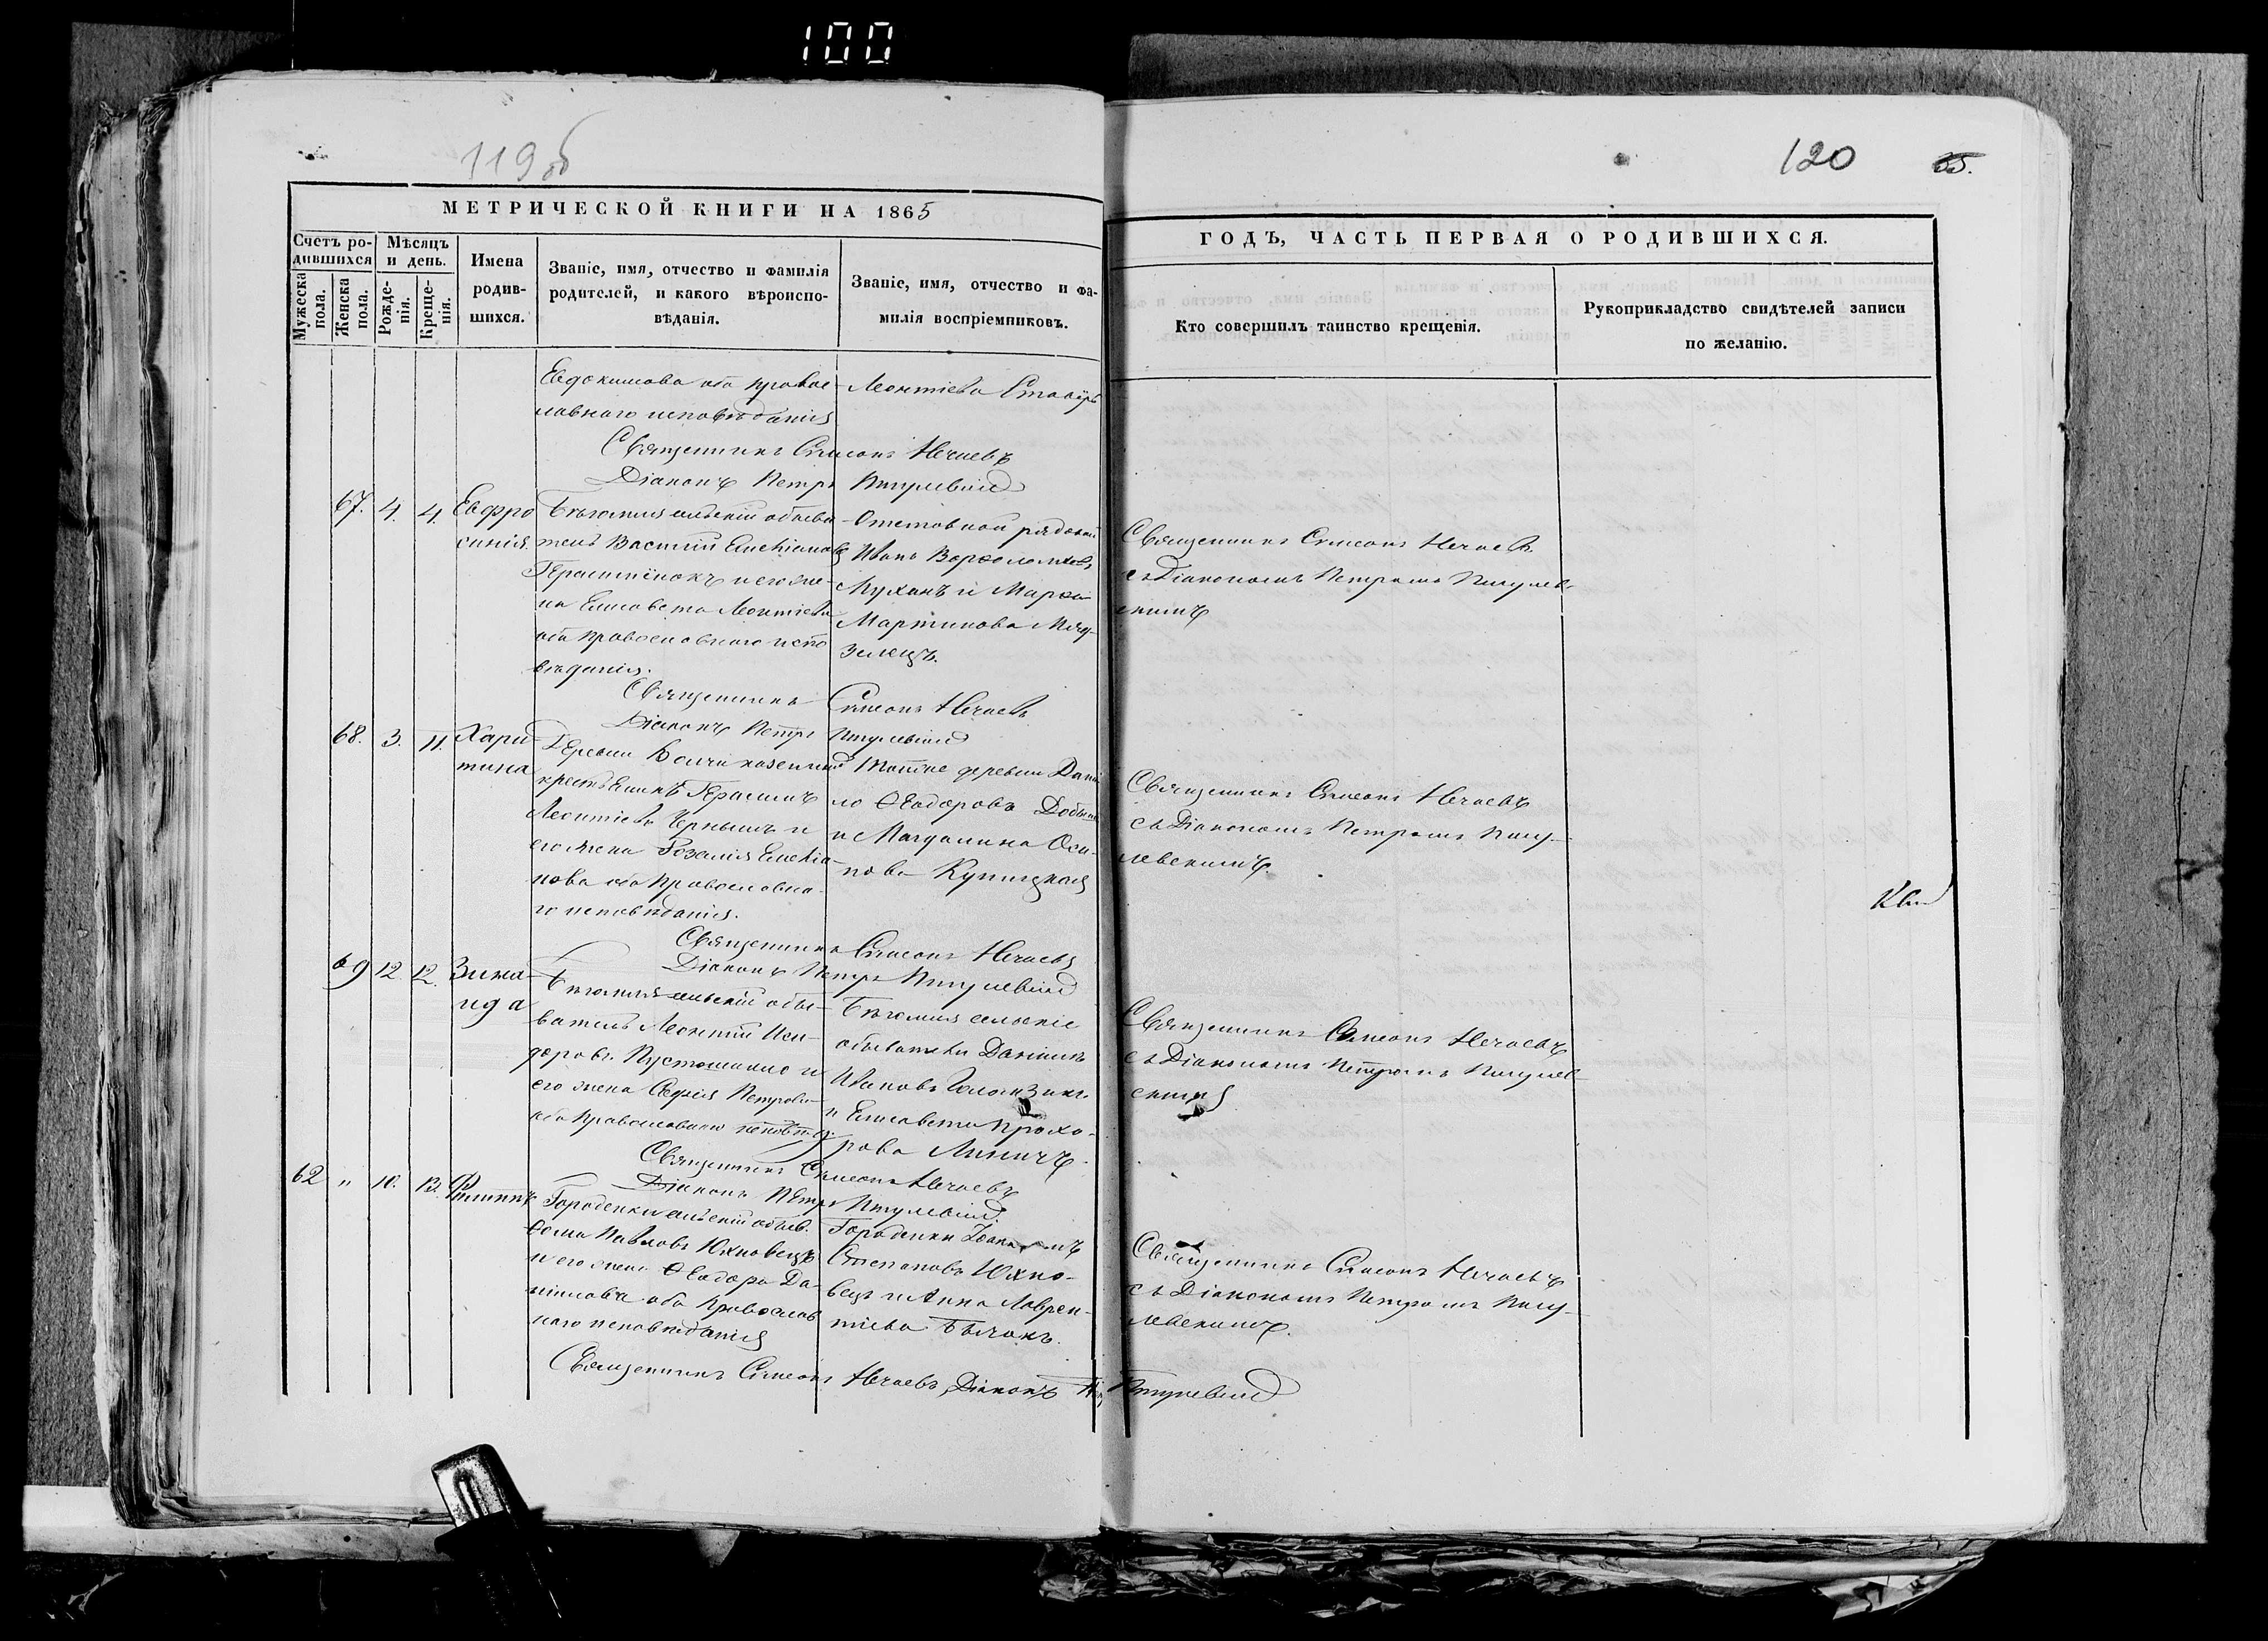 100
119 об
120
35.
МЕТРИЧЕСКОЙ КНИГИ НА 1865
ГОДЪ, ЧАСТЬ ПЕРВАЯ О РОДИВШИХСЯ.
Счетъ ро-
дившихся
Мужеска
пола.
Женска
пола.
Мѣсяцъ
и день.
Рожде-
нія.
Креще-
нія.
Имена
родив-
шихся.
Званіе, имя, отчество и фамилія
родителей, и какого вѣроиспо-
вѣданія.
Званіе, имя, отчество и фа-
милія воспріемниковъ.
Кто совершилъ таинство крещенія.
Рукоприкладство свидѣтелей записи
по желанію.
Евдокимова оба правос-
лавнаго исповѣданія
Леонтіева
Священникъ Симеонъ Нечаевъ
Діаконъ Петръ Пигулевскій
67. 4. 4.
Евфро
синія.
Бѣгомля сельскій обыва
тель Василій Емеліановъ
Герасимёнокъ и его же-
на Елисавета Леонтіева
оба православнаго испо
вѣданія.
Отставной рядовой
Иванъ Варѳоломеевъ
Муханъ и Марѳа
Мартинова Мяд-
зелецъ.
Священникъ Симеонъ Нечаевъ
съ Діакономъ Петромъ Пигулев-
скимъ
Священникъ Симеонъ Нечаевъ
Діаконъ Петръ Пигулевскій
68. 3. 11.
Хари
тина
Деревни казенный
крестьянинъ Герасимъ
Леонтіевъ Чернышъ и
его жена Розалія Емеліа
нова оба православна-
го исповѣданія.
Тойже деревни Дани
ло Ѳеодоровъ
и Магдалина Оси-
пова Купицкая
Священникъ Симеонъ Нечаевъ
съ Діакономъ Петромъ Пигу-
левскимъ.
Священникъ Симеонъ Нечаевъ
Діаконъ Петръ Пигулевскій
69 12. 12.
Зина
ида
Бѣгомля сельскій обы-
ватель Леонтій Иси-
доровъ Пустошило и
его жена Софія Петрова
оба православнаго исповѣд.
Бѣгомля сельскіе
обыватели Даніилъ
Ивановъ
и Елисавета Прохо-
рова Линичъ.
Священникъ Симеонъ Нечаевъ
съ Діакономъ Петромъ Пигулев-
скимъ
Священникъ Симеонъ Нечаевъ
Діаконъ Петръ Пигулевскій.
62 " 10. 13.
Филиппъ
Городенки сельскій обыв.
Ѳома Павловъ Юхновецъ
и его жена Ѳеодора Да-
ніилова оба Православ
наго исповѣданія
Городенки
Степановъ Юхно-
вецъ и Анна Лаврен-
тіева Бычокъ.
Священникъ Симеонъ Нечаевъ
съ Діакономъ Петромъ Пигу-
левскимъ.
Священникъ Симеонъ Нечаевъ, Діаконъ Пигулевскій